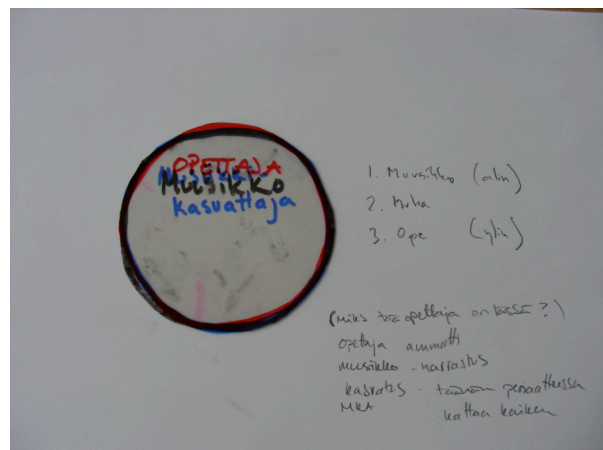 OPETTAJA
Musiikki
MUUSIKKO
kasvattaja
1. Muusikko (alin)
2. Muka
3. Ope (ylin)
(Miks tää opettaja on tässä?)
opettaja ammatti
muusikko - harrastus
kasvatus - täähän periaatteessa
MKA kattaa kaiken